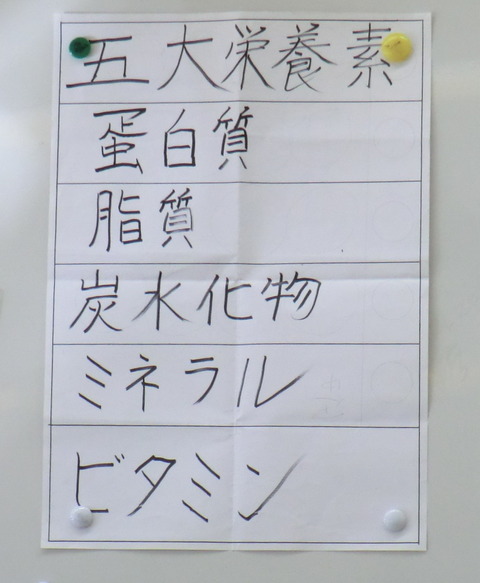 五大栄養素
蛋白質
脂質
炭水化物
ミネラル
ビタミン